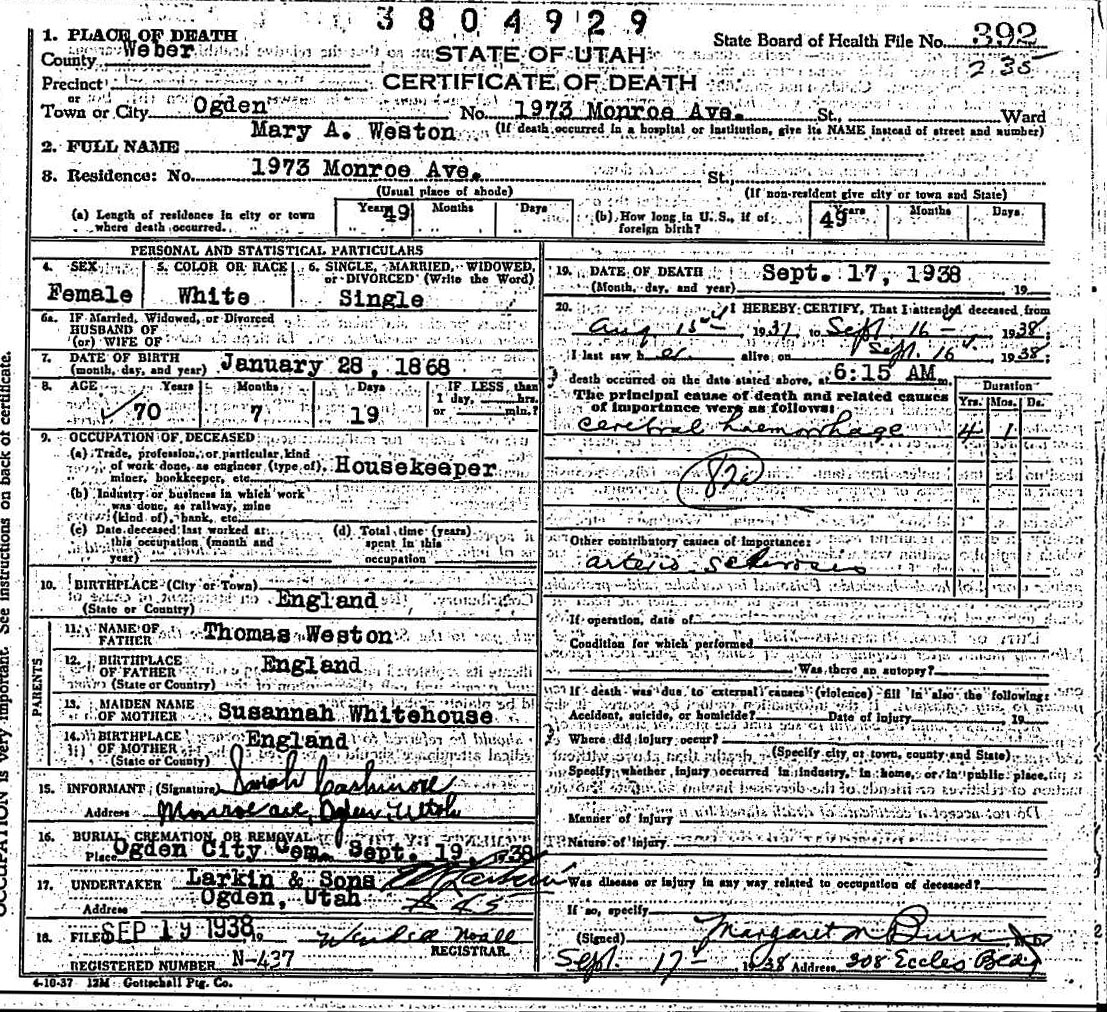 3804929
1. PLACE OF DEATH
State Board of Health File No. 392
County Weber
STATE OF UTAH
235
Precinct
CERTIFICATE OF DEATH
or
Town or City Ogden No. 1973 Monroe Ave. St., Ward
(If death occurred in a hospital or institution, give its NAME instead of street and number)
2. FULL NAME Mary A. Weston
3. Residence: No. 1973 Monroe Ave. St.,
(Usual place of abode) (If non-resident give city or town and State)
(a) Length of residence in city or town where death occurred. Years 49 Months Days
(b) How long in U. S., if of foreign birth? 49 Years Months Days
PERSONAL AND STATISTICAL PARTICULARS
4. SEX Female
5. COLOR OR RACE White
6. SINGLE, MARRIED, WIDOWED, or DIVORCED (Write the Word) Single
6a. IF Married, Widowed, or Divorced
HUSBAND OF
(or) WIFE OF
7. DATE OF BIRTH (month, day, and year) January 28, 1868
8. AGE Years 70 Months 7 Days 19 IF LESS than 1 day, hrs. or min.?
9. OCCUPATION OF DECEASED
(a) Trade, profession, or particular kind
of work done, as engineer (type of), Housekeeper
miner, bookkeeper, etc.
(b) Industry or business in which work
was done, as railway, mine
(kind of), bank, etc.
(c) Date deceased last worked at this occupation (month and year)
(d) Total time (years) spent in this occupation
10. BIRTHPLACE (City or Town)
(State or Country) England
PARENTS
11. NAME OF FATHER Thomas Weston
12. BIRTHPLACE OF FATHER England
(State or Country)
13. MAIDEN NAME OF MOTHER Susannah Whitehouse
14. BIRTHPLACE OF MOTHER England
(State or Country)
15. INFORMANT (Signature) Sarah Cashmore
Address Monroe ave, Ogden, Utah
16. BURIAL, CREMATION, OR REMOVAL
Place Ogden City Cem. Sept. 19, 1938
17. UNDERTAKER Larkin & Sons
Address Ogden, Utah
18. FILED SEP 19 1938, 19
REGISTRAR.
REGISTERED NUMBER N-437
4-10-37 12M Gottschall Ptg. Co.
19. DATE OF DEATH Sept. 17, 1938
(Month, day, and year) 19
20. I HEREBY CERTIFY, That I attended deceased from
Aug 15 1937 to Sept 16 1938
I last saw her alive on Sept. 16 1938;
death occurred on the date stated above, at 6:15 AM m.
The principal cause of death and related causes of importance were as follows:
Duration
Yrs. Mos. Ds.
cerebral haemorrhage 4 1
Other contributory causes of importance:
arterio sclerosis
If operation, date of
Condition for which performed
Was there an autopsy?
If death was due to external causes (violence) fill in also the following:
Accident, suicide, or homicide? Date of injury 19
Where did injury occur?
(Specify city or town, county and State)
Specify whether injury occurred in industry, in home, or in public place.
Manner of injury
Nature of injury
Was disease or injury in any way related to occupation of deceased?
If so, specify
(Signed) Margaret M Burn M.D.
Sept. 17 1938 Address 308 Eccles Bldg
OCCUPATION is very important. See instructions on back of certificate.